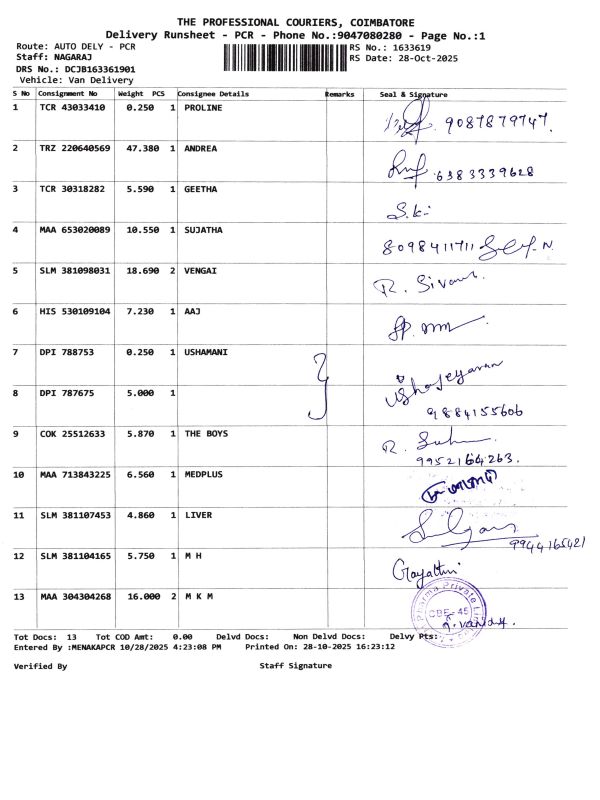 THE PROFESSIONAL COURIERS, COIMBATORE
Delivery Runsheet - PCR - Phone No.:9047080280 - Page No.:1
Route: AUTO DELY - PCR RS No.: 1633619
Staff: NAGARAJ RS Date: 28-Oct-2025
DRS No.: DCJB163361901
Vehicle: Van Delivery
S No Consignment No Weight PCS Consignee Details Remarks Seal & Signature
1 TCR 43033410 0.250 1 PROLINE 9087879747.
2 TRZ 220640569 47.380 1 ANDREA 6383339628
3 TCR 30318282 5.590 1 GEETHA
4 MAA 653020089 10.550 1 SUJATHA 8098411711
5 SLM 381098031 18.690 2 VENGAI R. Sivam
6 HIS 530109104 7.230 1 AAJ
7 DPI 788753 0.250 1 USHAMANI
8 DPI 787675 5.000 1 9884155606
9 COK 25512633 5.870 1 THE BOYS
9952164263.
10 MAA 713843225 6.560 1 MEDPLUS
11 SLM 381107453 4.860 1 LIVER
9944165421
12 SLM 381104165 5.750 1 M H Gayathri
13 MAA 304304268 16.000 2 M K M CBE-45
Tot Docs: 13 Tot COD Amt: 0.00 Delvd Docs: Non Delvd Docs: Delvy Pts:
Entered By :MENAKAPCR 10/28/2025 4:23:08 PM Printed On: 28-10-2025 16:23:12
Verified By Staff Signature